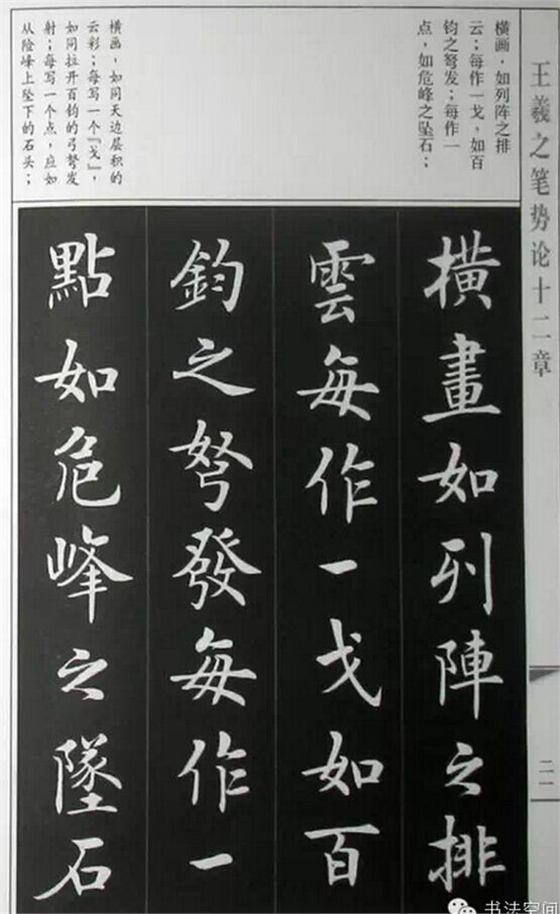 王羲之笔势论十二章
横画，如列阵之排
云；每作一戈，如百
钧之弩发；每作一
点，如危峰之坠石；
横画，如同天边层积的
云彩；每写一个『戈』，
如同拉开百钧的弓弩发
射；每写一个点，应如
从险峰上坠下的石头；
橫畫如列陣之排
雲每作一戈如百
鈞之弩發每作一
點如危峰之墜石
二一
书法空间